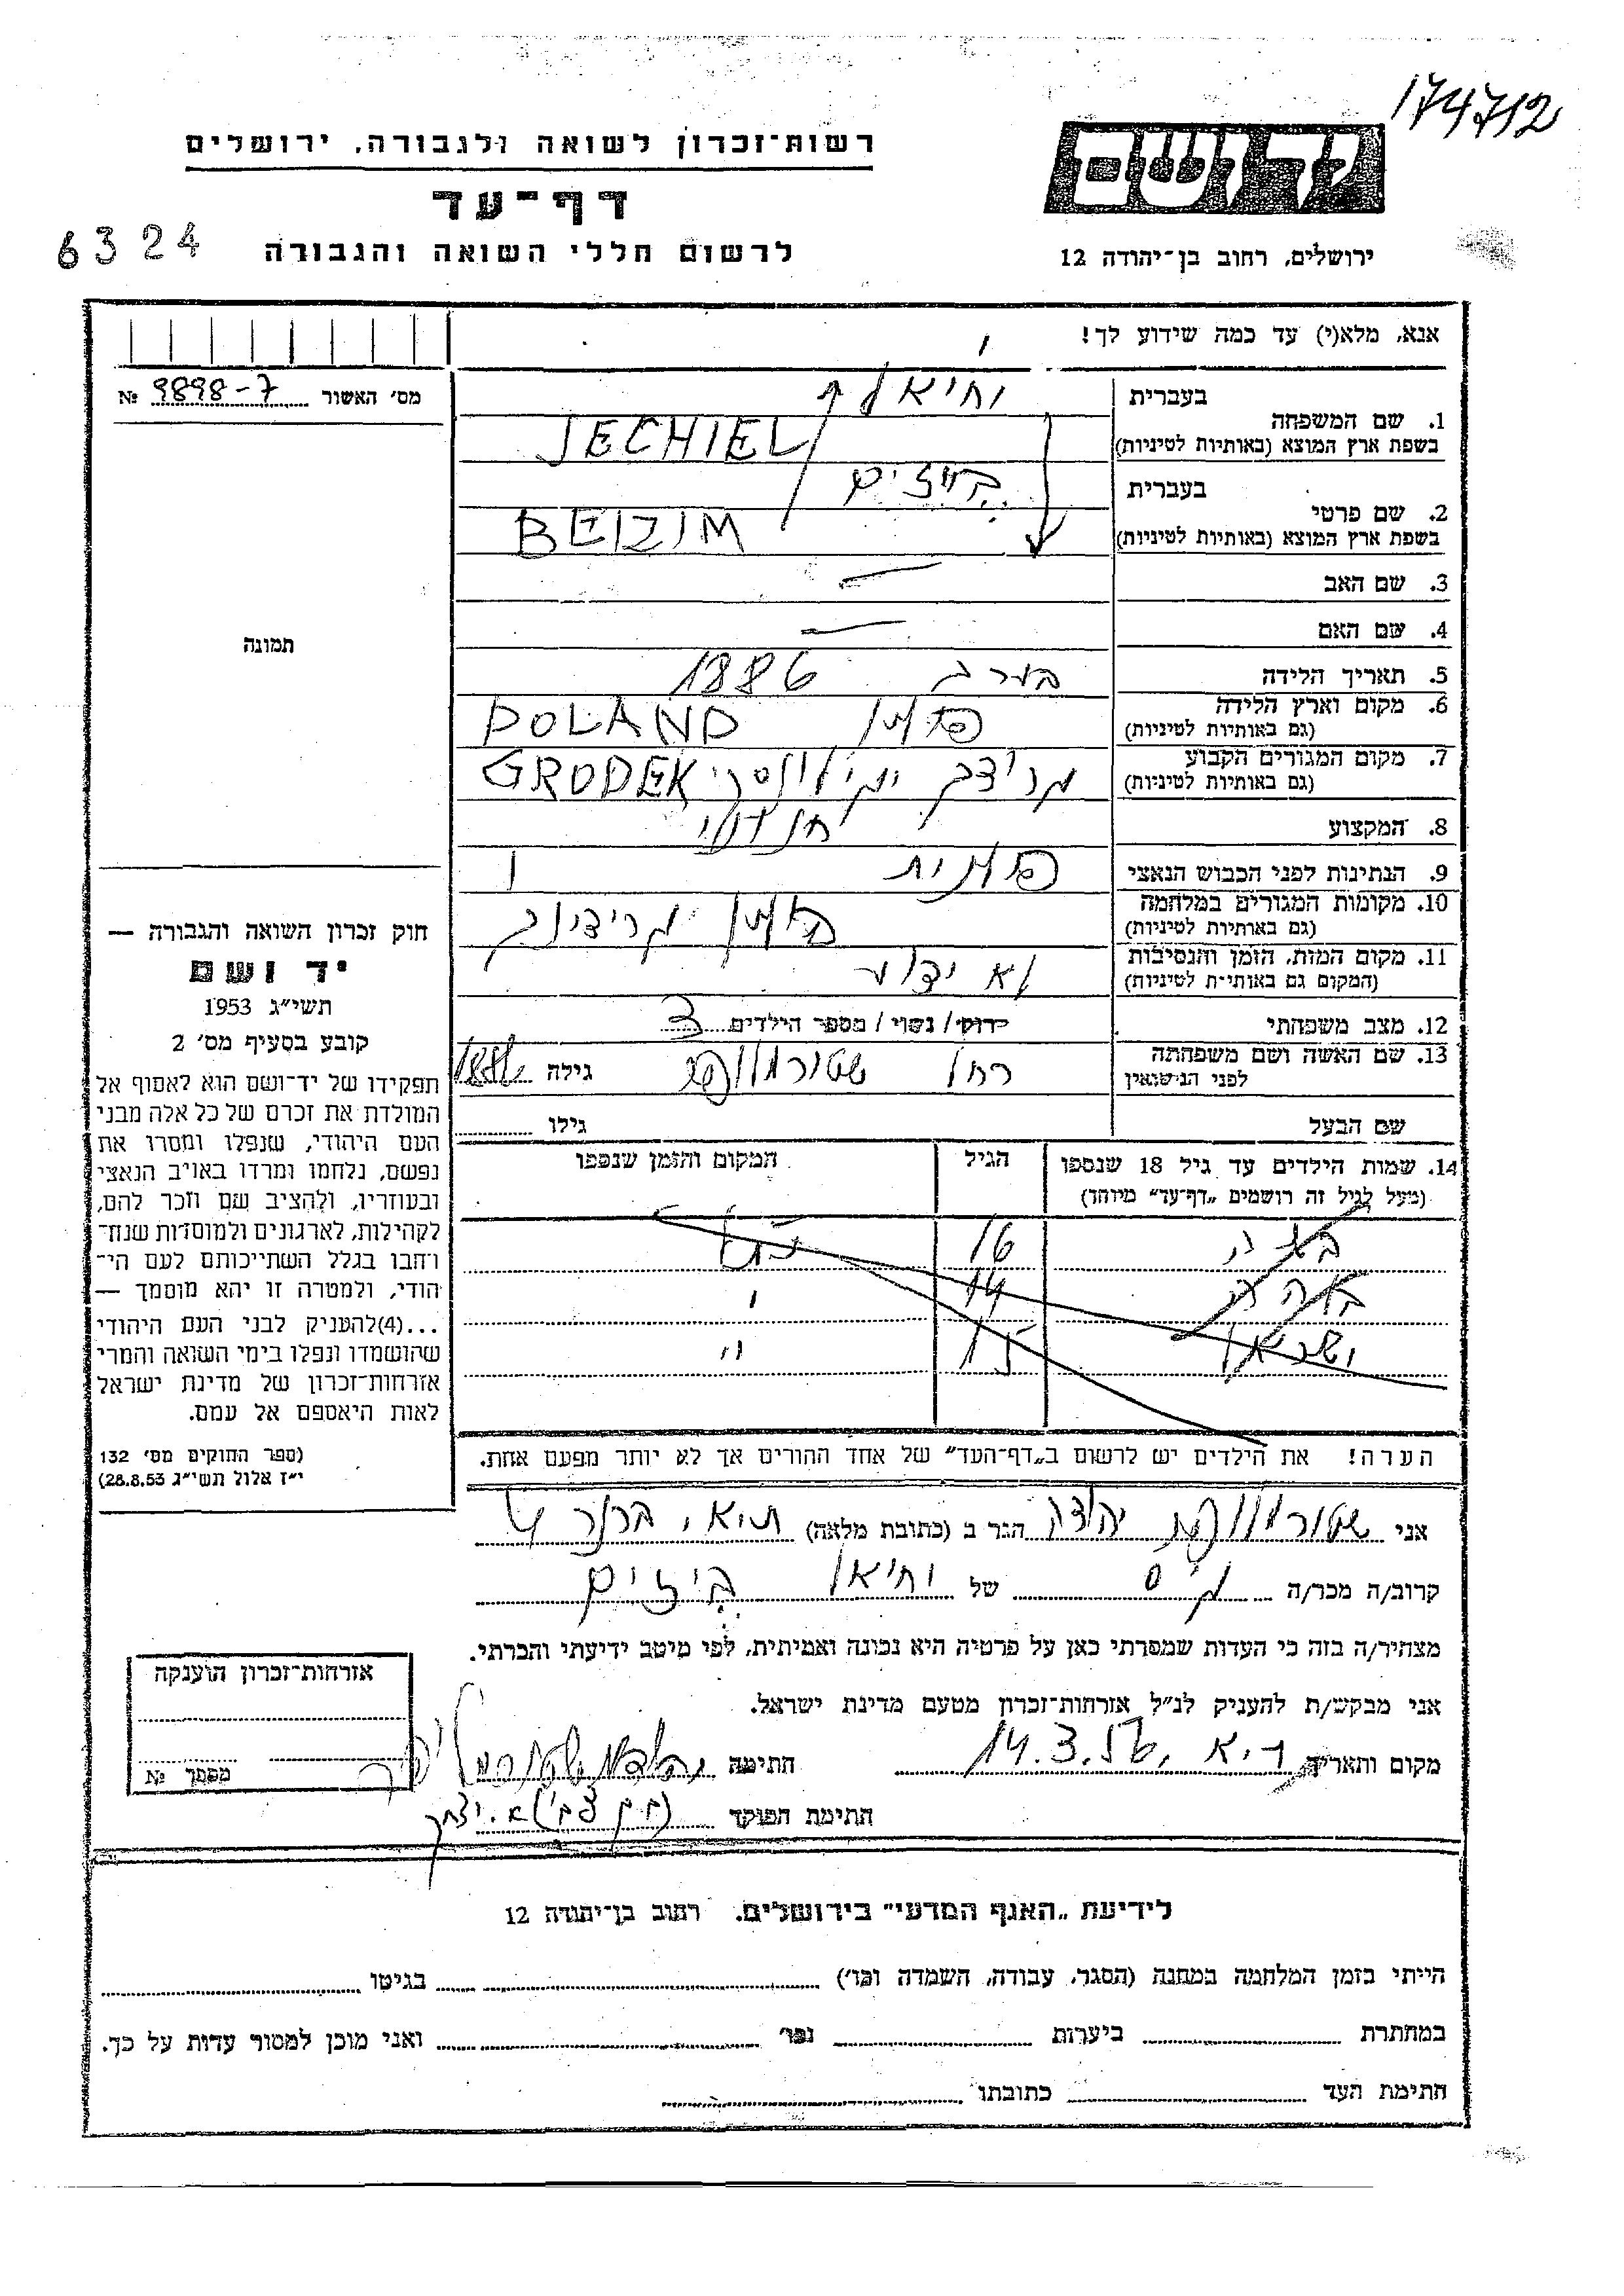 174712
רשות־זכרון לשואה ולגבורה, ירושלים
יד ושם
דף־עד
6324
לרשום חללי השואה והגבורה
ירושלים, רחוב בן־יהודה 12
אנא, מלא(י) עד כמה שידוע לך!
מס׳ האשור 9898-7 №
1. שם המשפחה
בעברית יחיאל
בשפת ארץ המוצא (באותיות לטיניות) JECHIEL
2. שם פרטי
בעברית בייזים
בשפת ארץ המוצא (באותיות לטיניות) BEIZIM
3. שם האב —
4. שם האם —
תמונה
5. תאריך הלידה בערך 1886
6. מקום וארץ הלידה פולין POLAND
(גם באותיות לטיניות)
7. מקום המגורים הקבוע GRODEK
(גם באותיות לטיניות)
8. המקצוע
9. הנתינות לפני הכבוש הנאצי פולנית
10. מקומות המגורים במלחמה
(גם באותיות לטיניות)
11. מקום המות, הזמן והנסיבות לא ידוע
(המקום גם באותיות לטיניות)
12. מצב משפחתי רווק / נשוי / מספר הילדים 3
13. שם האשה ושם משפחתה
לפני הנישואין רחל גילה
שם הבעל גילו
14. שמות הילדים עד גיל 18 שנספו
(מעל לגיל זה רושמים „דף־עד” מיוחד)
הגיל
המקום והזמן שנספו
16
14
ישראל 15 "
הערה! את הילדים יש לרשום ב„דף־העד” של אחד ההורים אך לא יותר מפעם אחת.
חוק זכרון השואה והגבורה —
יד ושם
תשי״ג 1953
קובע בסעיף מס׳ 2
תפקידו של יד־ושם הוא לאסוף אל
המולדת את זכרם של כל אלה מבני
העם היהודי, שנפלו ומסרו את
נפשם, נלחמו ומרדו באויב הנאצי
ובעוזריו, ולהציב שם וזכר להם,
לקהילות, לארגונים ולמוסדות שנח־
רבו בגלל השתייכותם לעם הי־
הודי, ולמטרה זו יהא מוסמך —
...(4) להעניק לבני העם היהודי
שהושמדו ונפלו בימי השואה והמרי
אזרחות־זכרון של מדינת ישראל
לאות היאספם אל עמם.
(ספר החוקים מס׳ 132
י״ז אלול תשי״ג 28.8.53)
אני יהודה הגר ב (כתובת מלאה)
קרוב/ה מכר/ה גיס של יחיאל בייזים
מצהיר/ה בזה כי העדות שמסרתי כאן על פרטיה היא נכונה ואמיתית, לפי מיטב ידיעתי והכרתי.
אני מבקש/ת להעניק לנ״ל אזרחות־זכרון מטעם מדינת ישראל.
מקום ותאריך ת״א, 14.3.56 חתימה
חתימת הפוקד
אזרחות־זכרון הוענקה
מספר №
לידיעת „האגף המדעי” בירושלים, רחוב בן־יהודה 12
הייתי בזמן המלחמה במחנה (הסגר, עבודה, השמדה וכו׳) בגיטו
במחתרת ביערות וכו׳ ואני מוכן למסור עדות על כך.
חתימת העד כתובתו